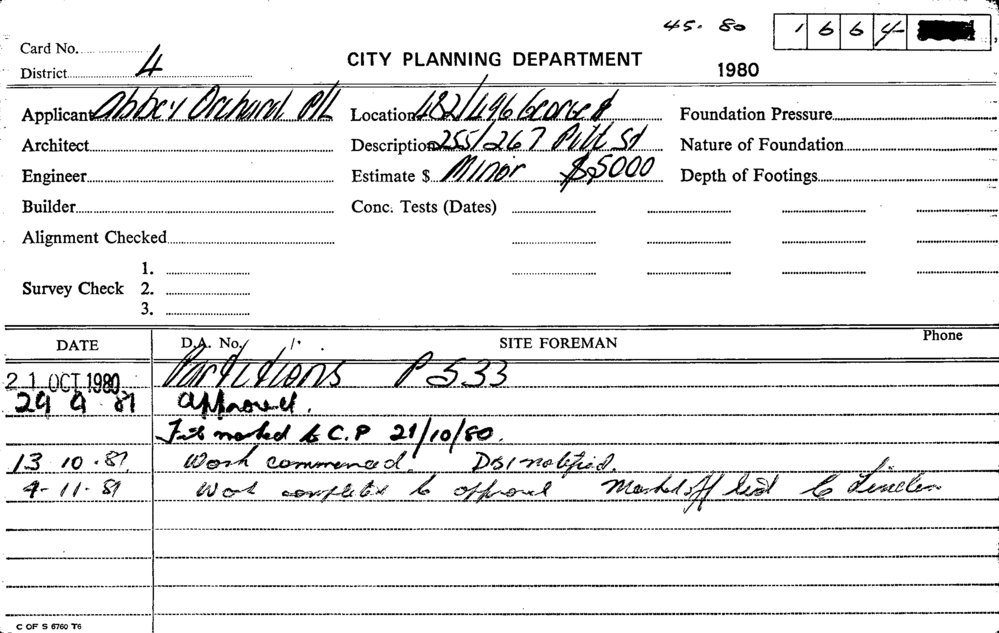 45. 80
1 6 6 4
Card No.
District 4
CITY PLANNING DEPARTMENT
1980
Applicant Abbey Orchard P/L
Location 482/496 George St
Foundation Pressure
Architect
Description 255/267 Pitt St
Nature of Foundation
Engineer
Estimate $ Minor $5000
Depth of Footings
Builder
Conc. Tests (Dates)
Alignment Checked
1.
Survey Check 2.
3.
DATE D.A. No. SITE FOREMAN Phone
21 OCT 1980 Partitions P 533
29 9 81 Approved.
marked to C.P 21/10/80.
13 10 . 81 Work commenced. DSI notified.
4 - 11 - 81 Work complete to approval Marked off
C OF S 6760 T6